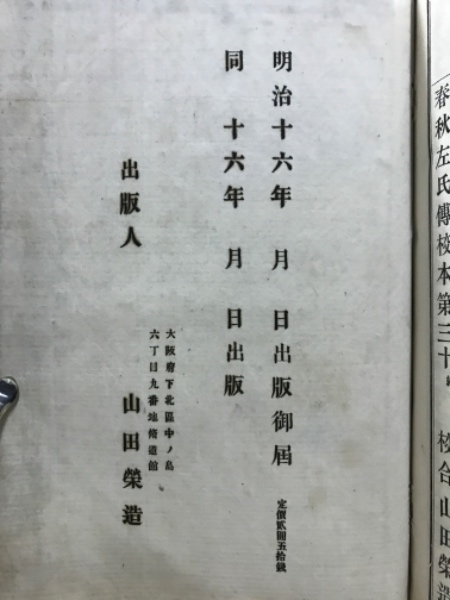 春秋左氏傳校本第三十
校合山田榮造
明治十六年 月 日出版御屆
定價貳圓五拾錢
同 十六年 月 日出版
大阪府下北區中ノ島
六丁目九番地脩道館
出版人 山田榮造